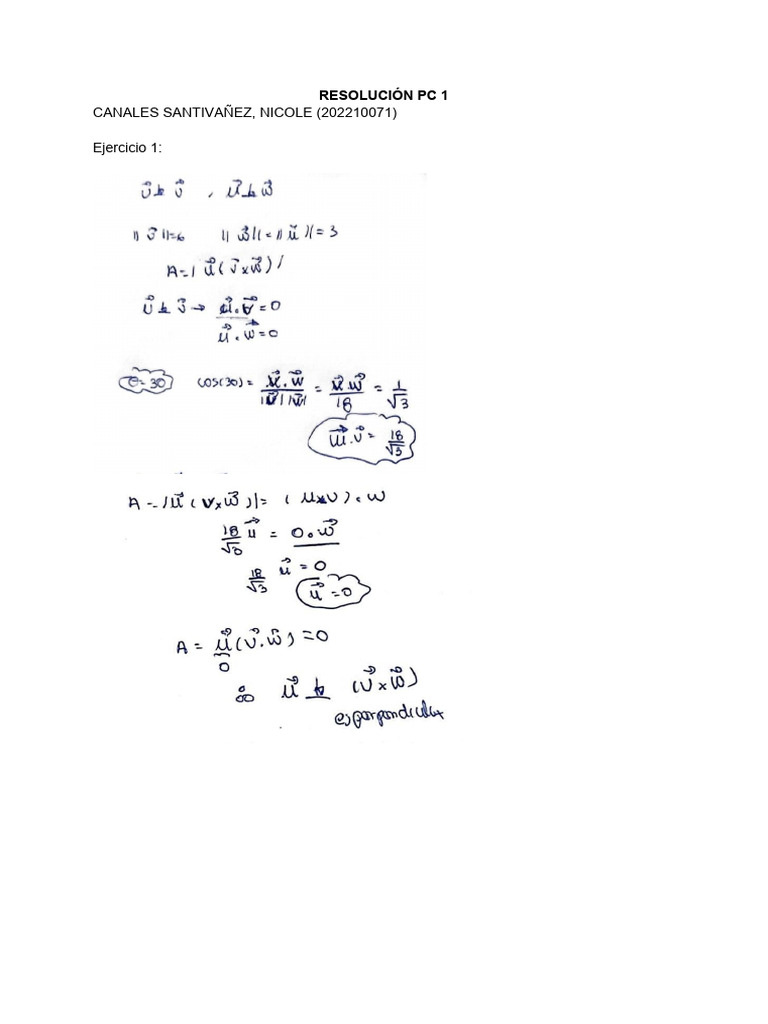 RESOLUCIÓN PC 1
CANALES SANTIVAÑEZ, NICOLE (202210071)
Ejercicio 1:
u⃗ ⊥ v⃗ , u⃗ ⊥ w⃗
||v⃗||=6 ||w⃗||=||u⃗||=3
A=|u⃗(v⃗×w⃗)|
u⃗ ⊥ v⃗ → u⃗.v⃗=0
u⃗.w⃗=0
θ=30 cos(30)= v⃗.w⃗/|v⃗||w⃗| = v⃗.w⃗/18 = 1/√3
w⃗.v⃗= 18/√3
A=|u⃗(v×w⃗)|= (u×v).w
18/√3 u⃗ = 0.w⃗
18/√3 u⃗=0
u⃗=0
A= u⃗(v⃗.w⃗)=0
0
∴ u⃗ ⊥ (v⃗×w⃗)
es perpendicular